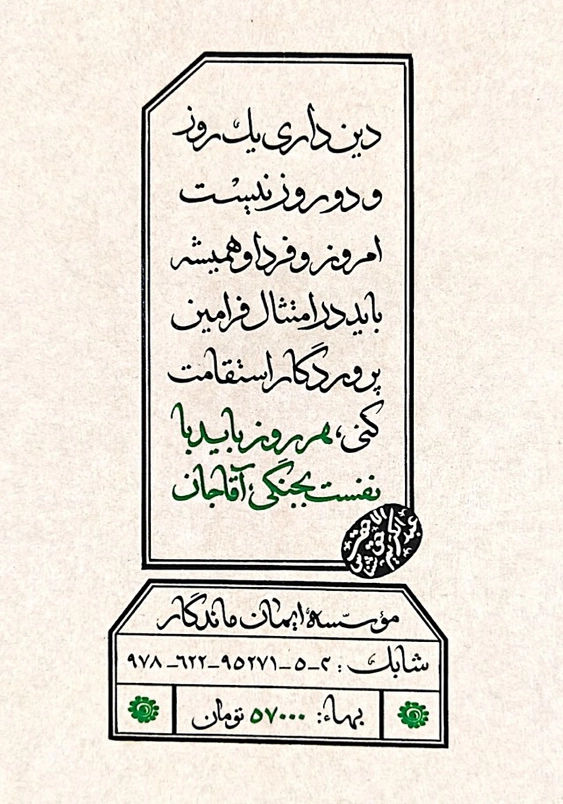 دین‌داری یك روز
و دو روز نیسْت
امروز و فردا و همیشه
باید در امتثال فرامین
پروردگار استقامت
کنی، هر روز باید با
نفست بجنگی، آقاجان
الاحقر
عبدالکریم حق‌شناس
مؤسّسهٔ ایمان ماندگار
شابك : ۲_۵_۹۵۲۷۱_۶۲۲_۹۷۸
بهاء: ۵۷۰۰۰ تومان